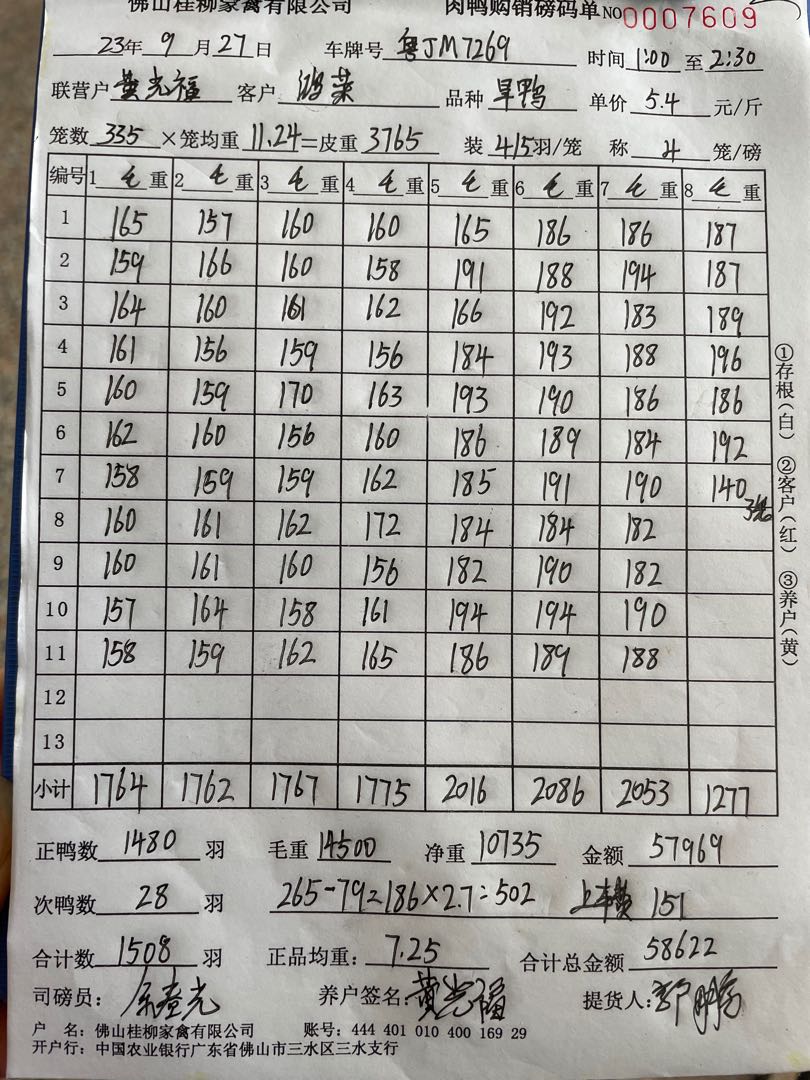 佛山桂柳家禽有限公司 肉鸭购销磅码单 No 0007609
23年 9月 27日 车牌号 粤JM7269 时间 1:00 至 2:30
联营户 黄光福 客户 鸿荣 品种 旱鸭 单价 5.4 元/斤
笼数 335 ×笼均重 11.24 =皮重 3765 装 4/5 羽/笼 称 4 笼/磅
编号 1 毛 重 2 毛 重 3 毛 重 4 毛 重 5 毛 重 6 毛 重 7 毛 重 8 毛 重
1 165 157 160 160 165 186 186 187
2 159 166 160 158 191 188 194 187
3 164 160 161 162 166 192 183 189
4 161 156 159 156 184 193 188 196
5 160 159 170 163 193 190 186 186
6 162 160 156 160 186 189 184 192
7 158 159 159 162 185 191 190 140
8 160 161 162 172 184 184 182
9 160 161 160 156 182 190 182
10 157 164 158 161 194 194 190
11 158 159 162 165 186 189 188
12
13
小计 1764 1762 1767 1775 2016 2086 2053 1277
正鸭数 1480 羽 毛重 14500 净重 10735 金额 57969
次鸭数 28 羽 265-79=186×2.7=502 上车费 151
合计数 1508 羽 正品均重: 7.25 合计总金额 58622
司磅员: 养户签名: 黄光福 提货人:
户 名: 佛山桂柳家禽有限公司 账号: 444 401 010 400 169 29
开户行: 中国农业银行广东省佛山市三水区三水支行
①存根(白) ②客户(红) ③养户(黄)